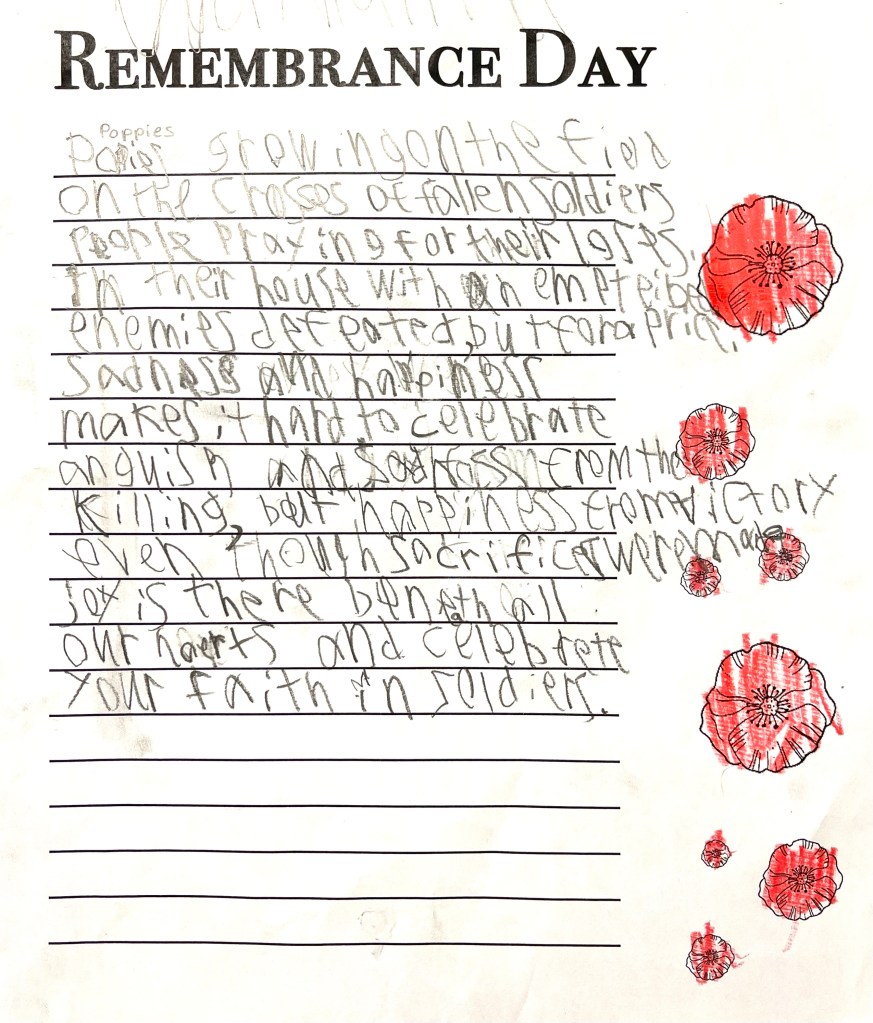 REMEMBRANCE DAY
Poppies
growing on the field
on the crosses of fallen soldiers
people praying for their loses,
In their house with an emptei bed
enemies defeated, but for a price,
Sadness and happiness
makes it hard to celebrate
anguish and from the
killing, but happiness from victory
even though sacrifices were made
joy is there beneath all
our hearts and celebrate
your faith in soldiers.